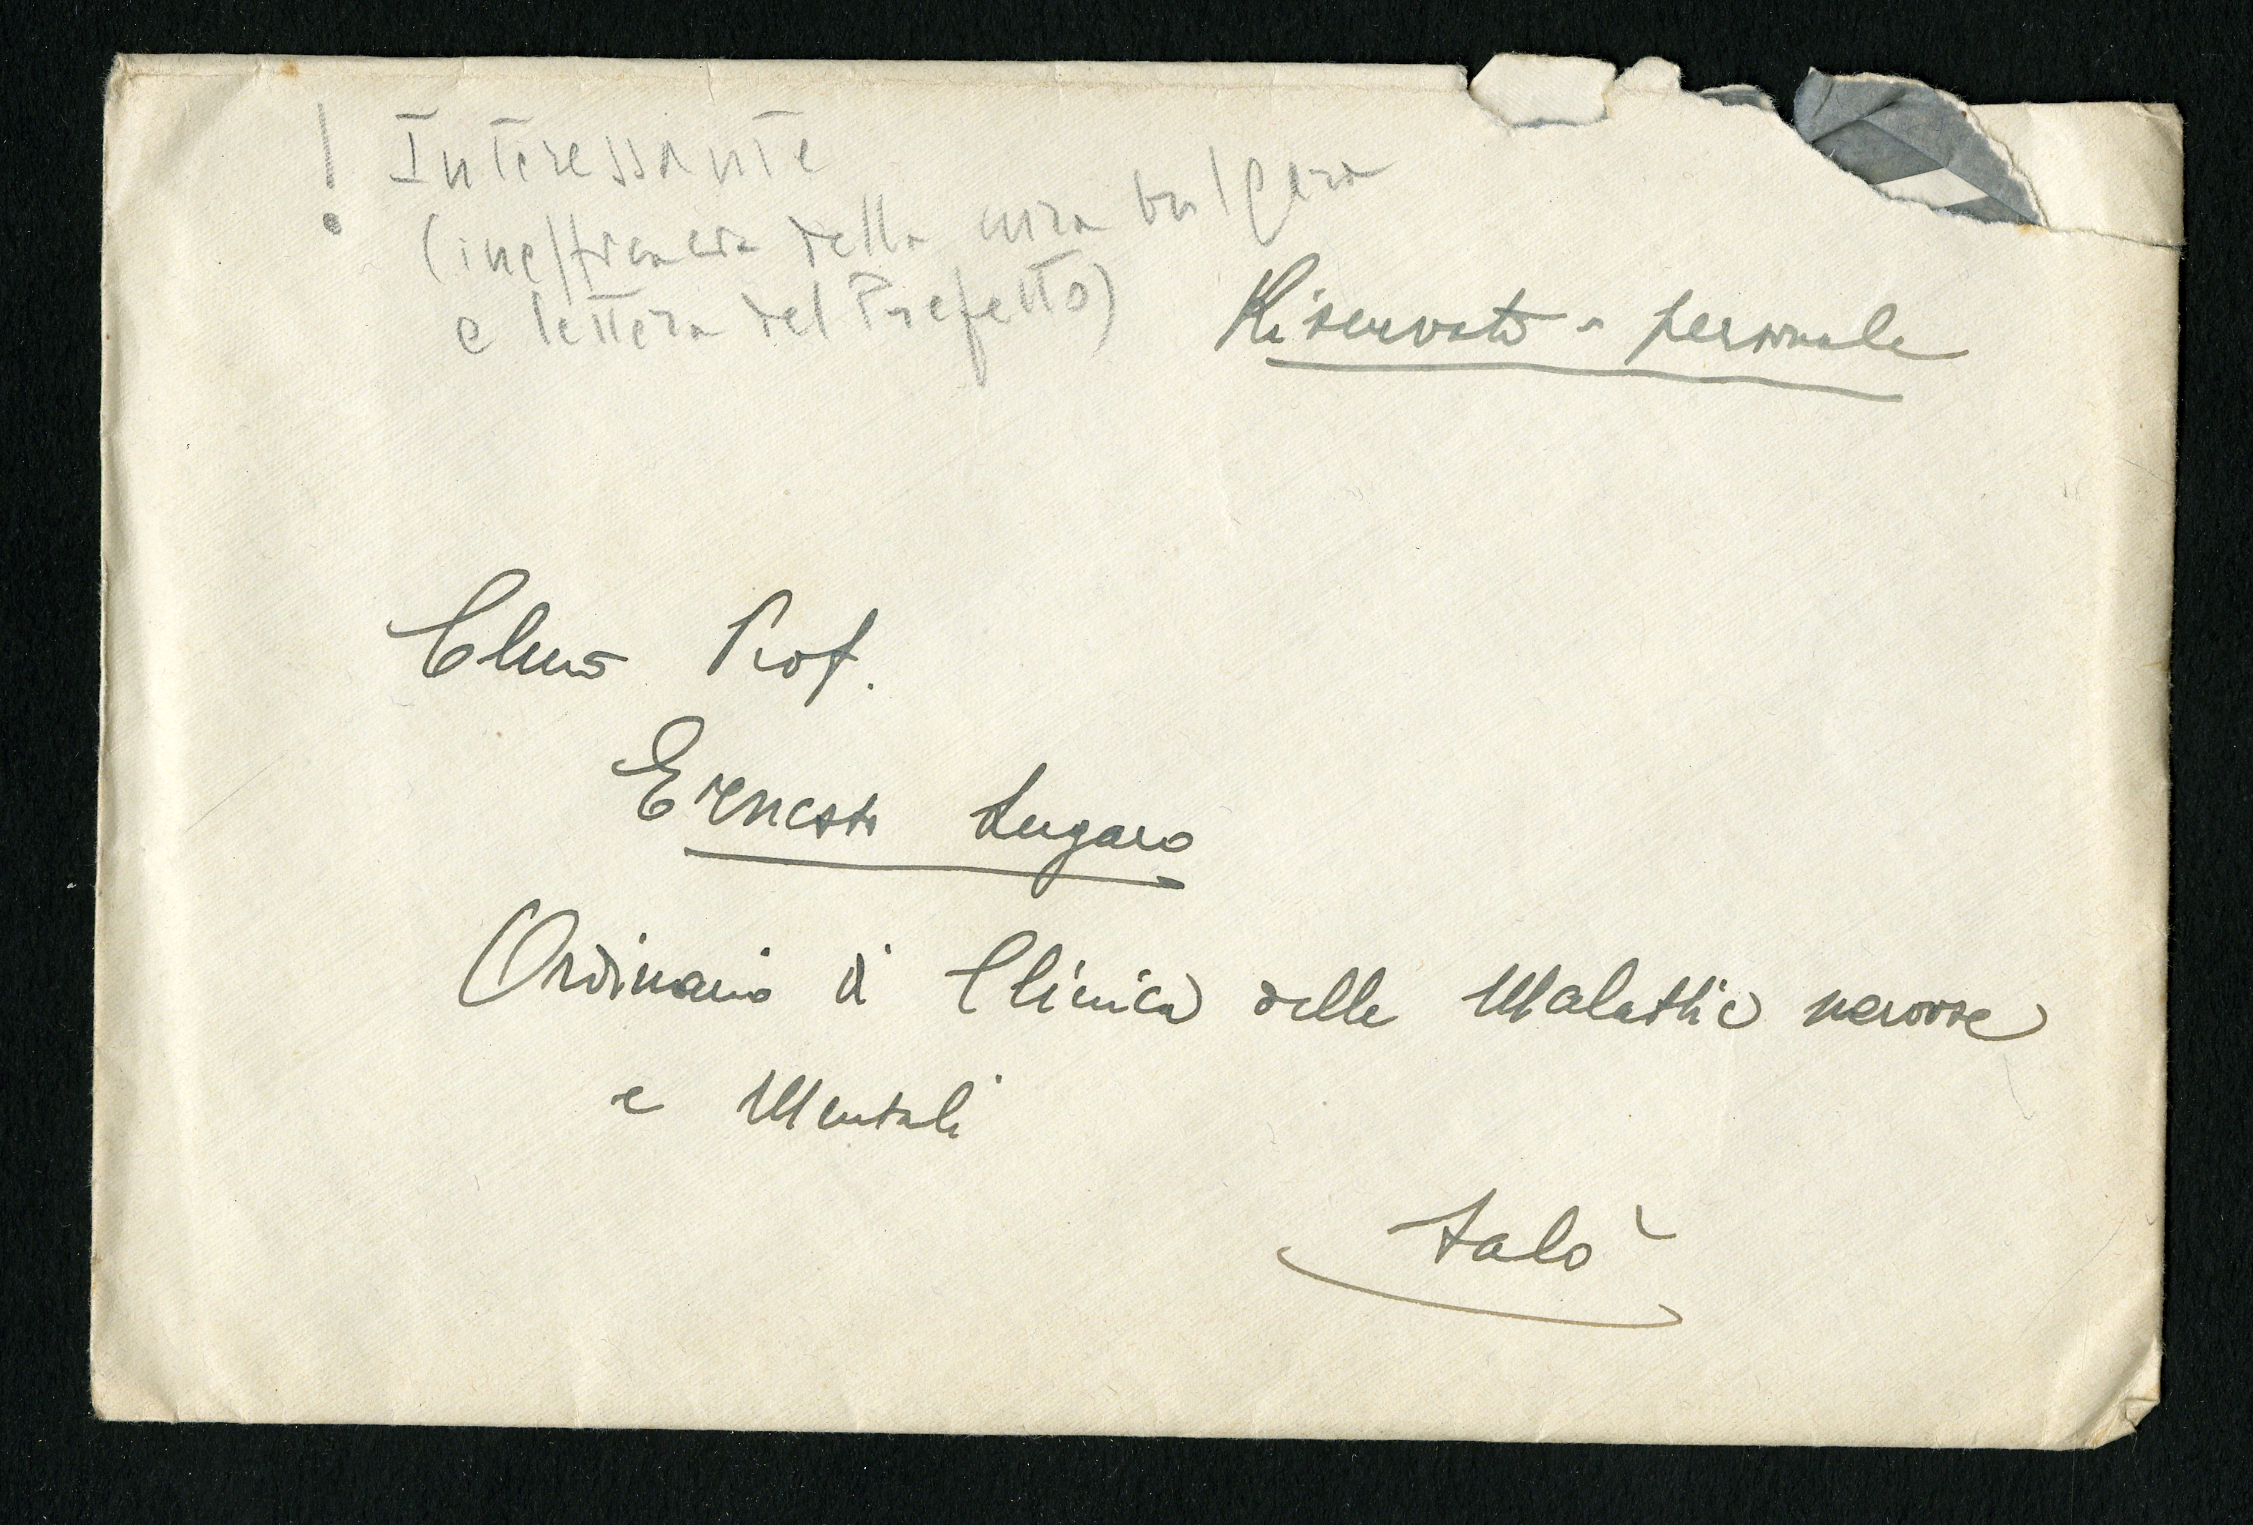 ! Interessante
(inefficacia della cura bulgara
e lettera del Prefetto)
Riservata - personale
Clmo Prof.
Ernesto Lugaro
Ordinario di Clinica delle Malattie nervose
e Mentali
Salò